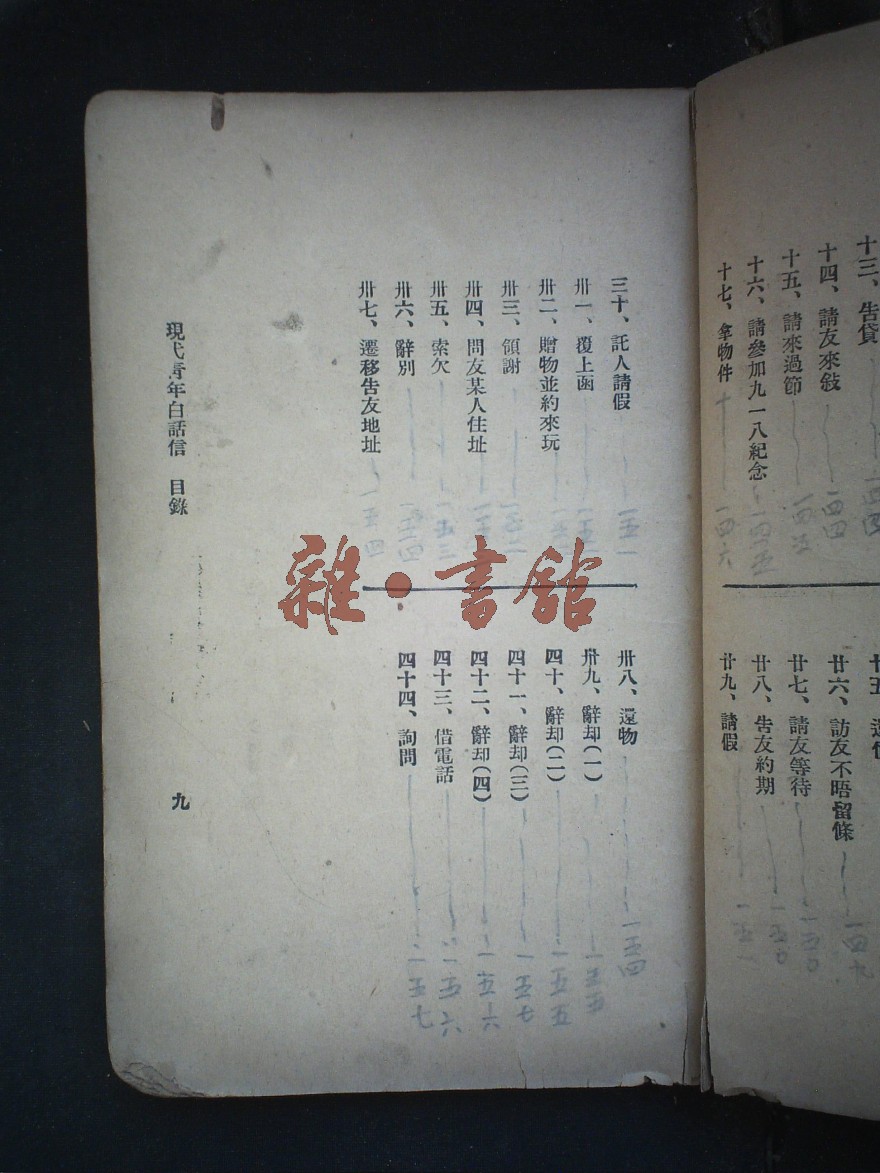 十三、告貸 一四四
十四、請友來敍 一四四
十五、請來過節 一四五
十六、請參加九一八紀念 一四五
十七、拿物件 一四六
廿六、訪友不晤留條 一四九
廿七、請友等待 一五〇
廿八、告友約期 一五〇
廿九、請假 一五一
三十、託人請假 一五一
卅一、覆上函
卅二、贈物並約來玩
卅三、領謝
卅四、問友某人住址
卅五、索欠 一五三
卅六、辭別 一五四
卅七、遷移告友地址 一五四
卅八、還物 一五四
卅九、辭却(一) 一五五
四十、辭却(二) 一五五
四十一、辭却(三) 一五七
四十二、辭却(四) 一五六
四十三、借電話 一五六
四十四、詢問 一五七
現代靑年白話信 目錄
九
雜·書舘